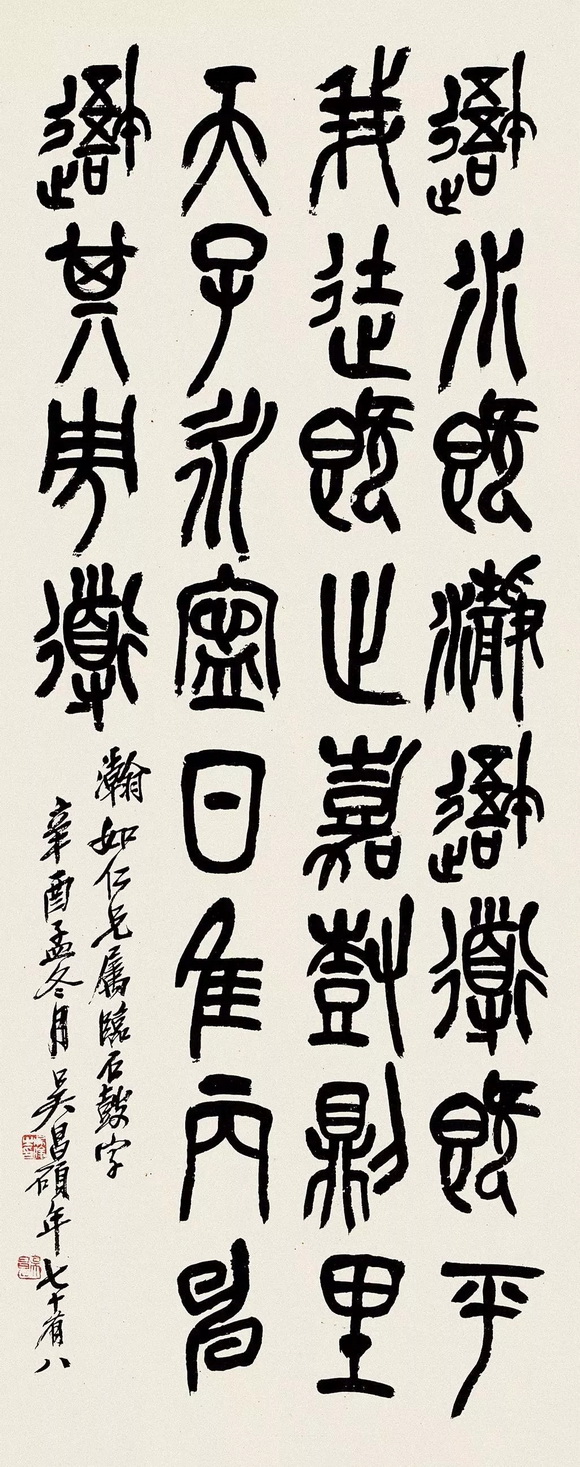 吾水既瀞吾導既平
我徒既止嘉樹則里
天子永寧日隹丙申
吾其旉導
瀚如仁兄屬臨石鼓字
辛酉孟冬月吳昌碩年七十有八